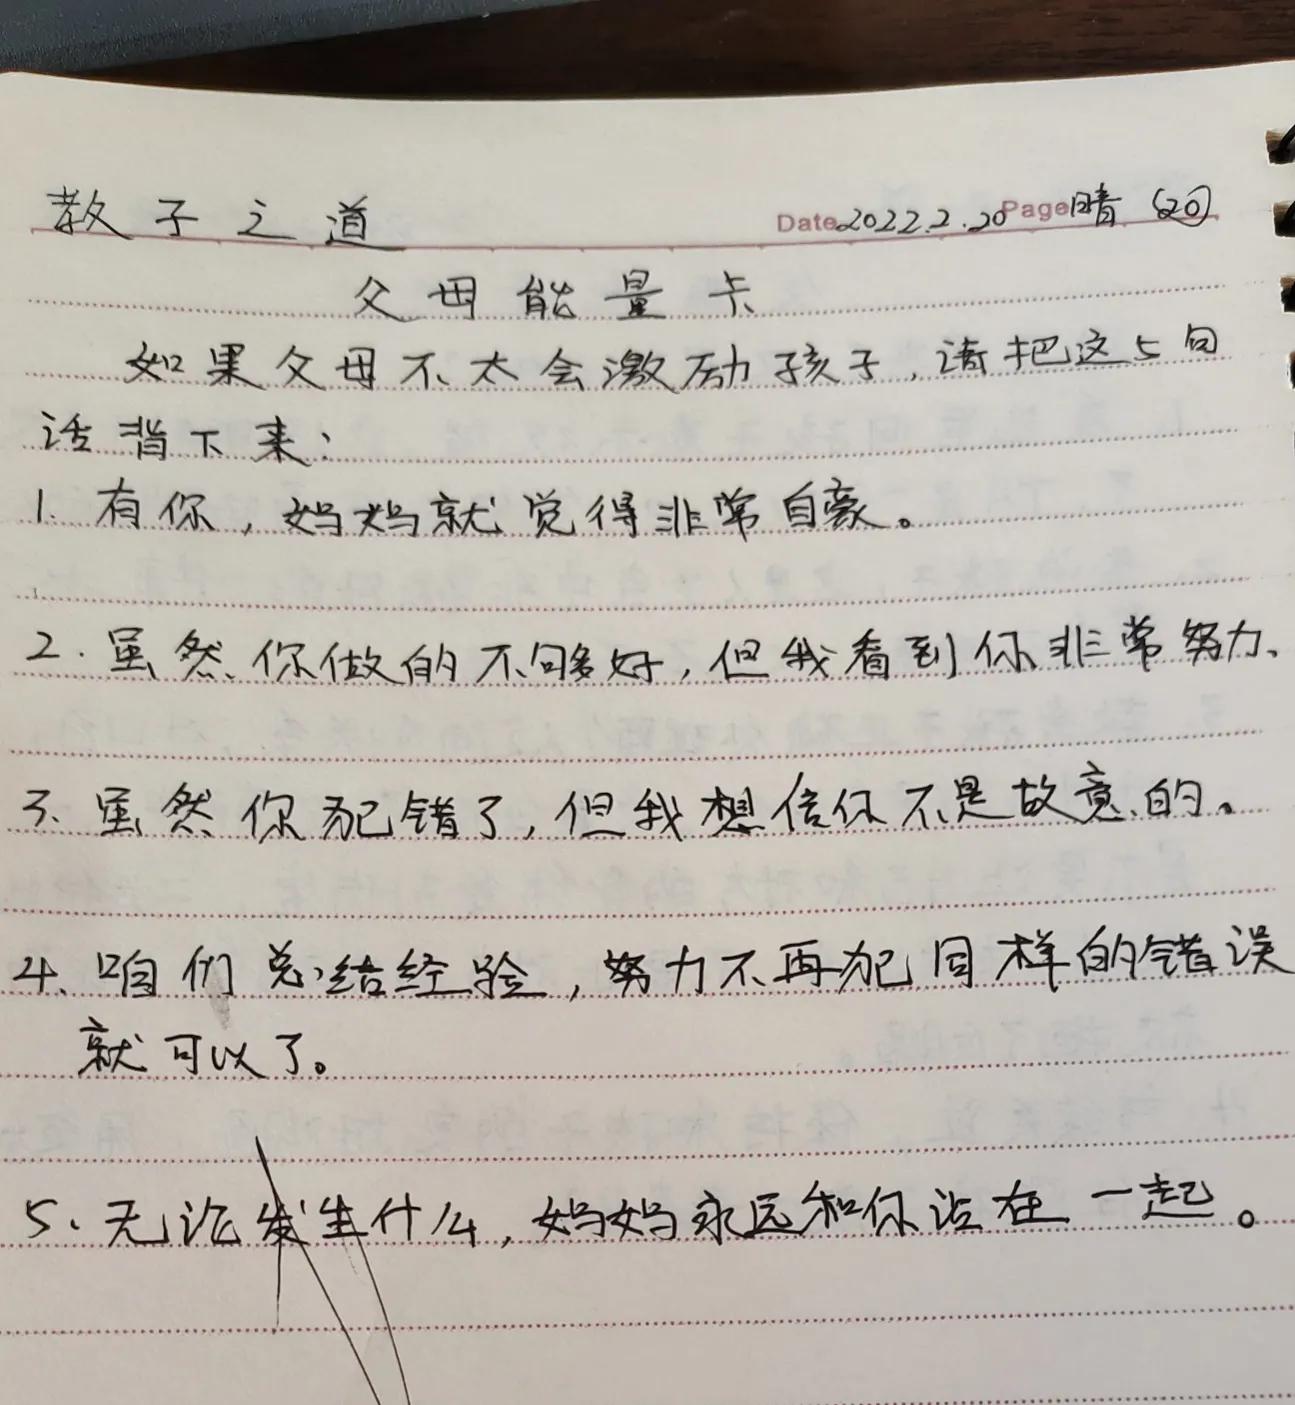 教子之道 Date 2022.2.20 Page 晴 (20)
父母能量卡
如果父母不太会激励孩子,请把这5句
话背下来:
1. 有你,妈妈就觉得非常自豪。
2. 虽然你做的不够好,但我看到你非常努力、
3、虽然你犯错了,但我想信你不是故意的。
4、咱们总结经验,努力不再犯同样的错误
就可以了。
5、无论发生什么,妈妈永远和你站在一起。